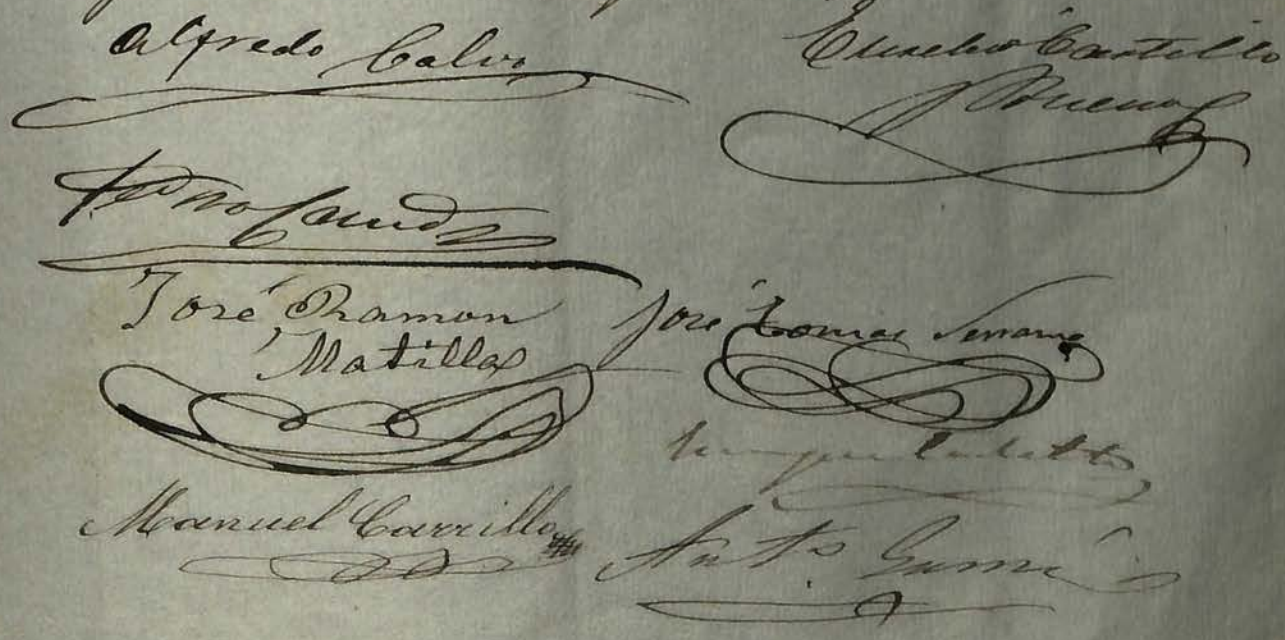 Alfredo Calvo
Eusebio Castillo
Bueno
José Ramon
Matilla
José Tomas Serrano
Manuel Carrillo
Ant.º